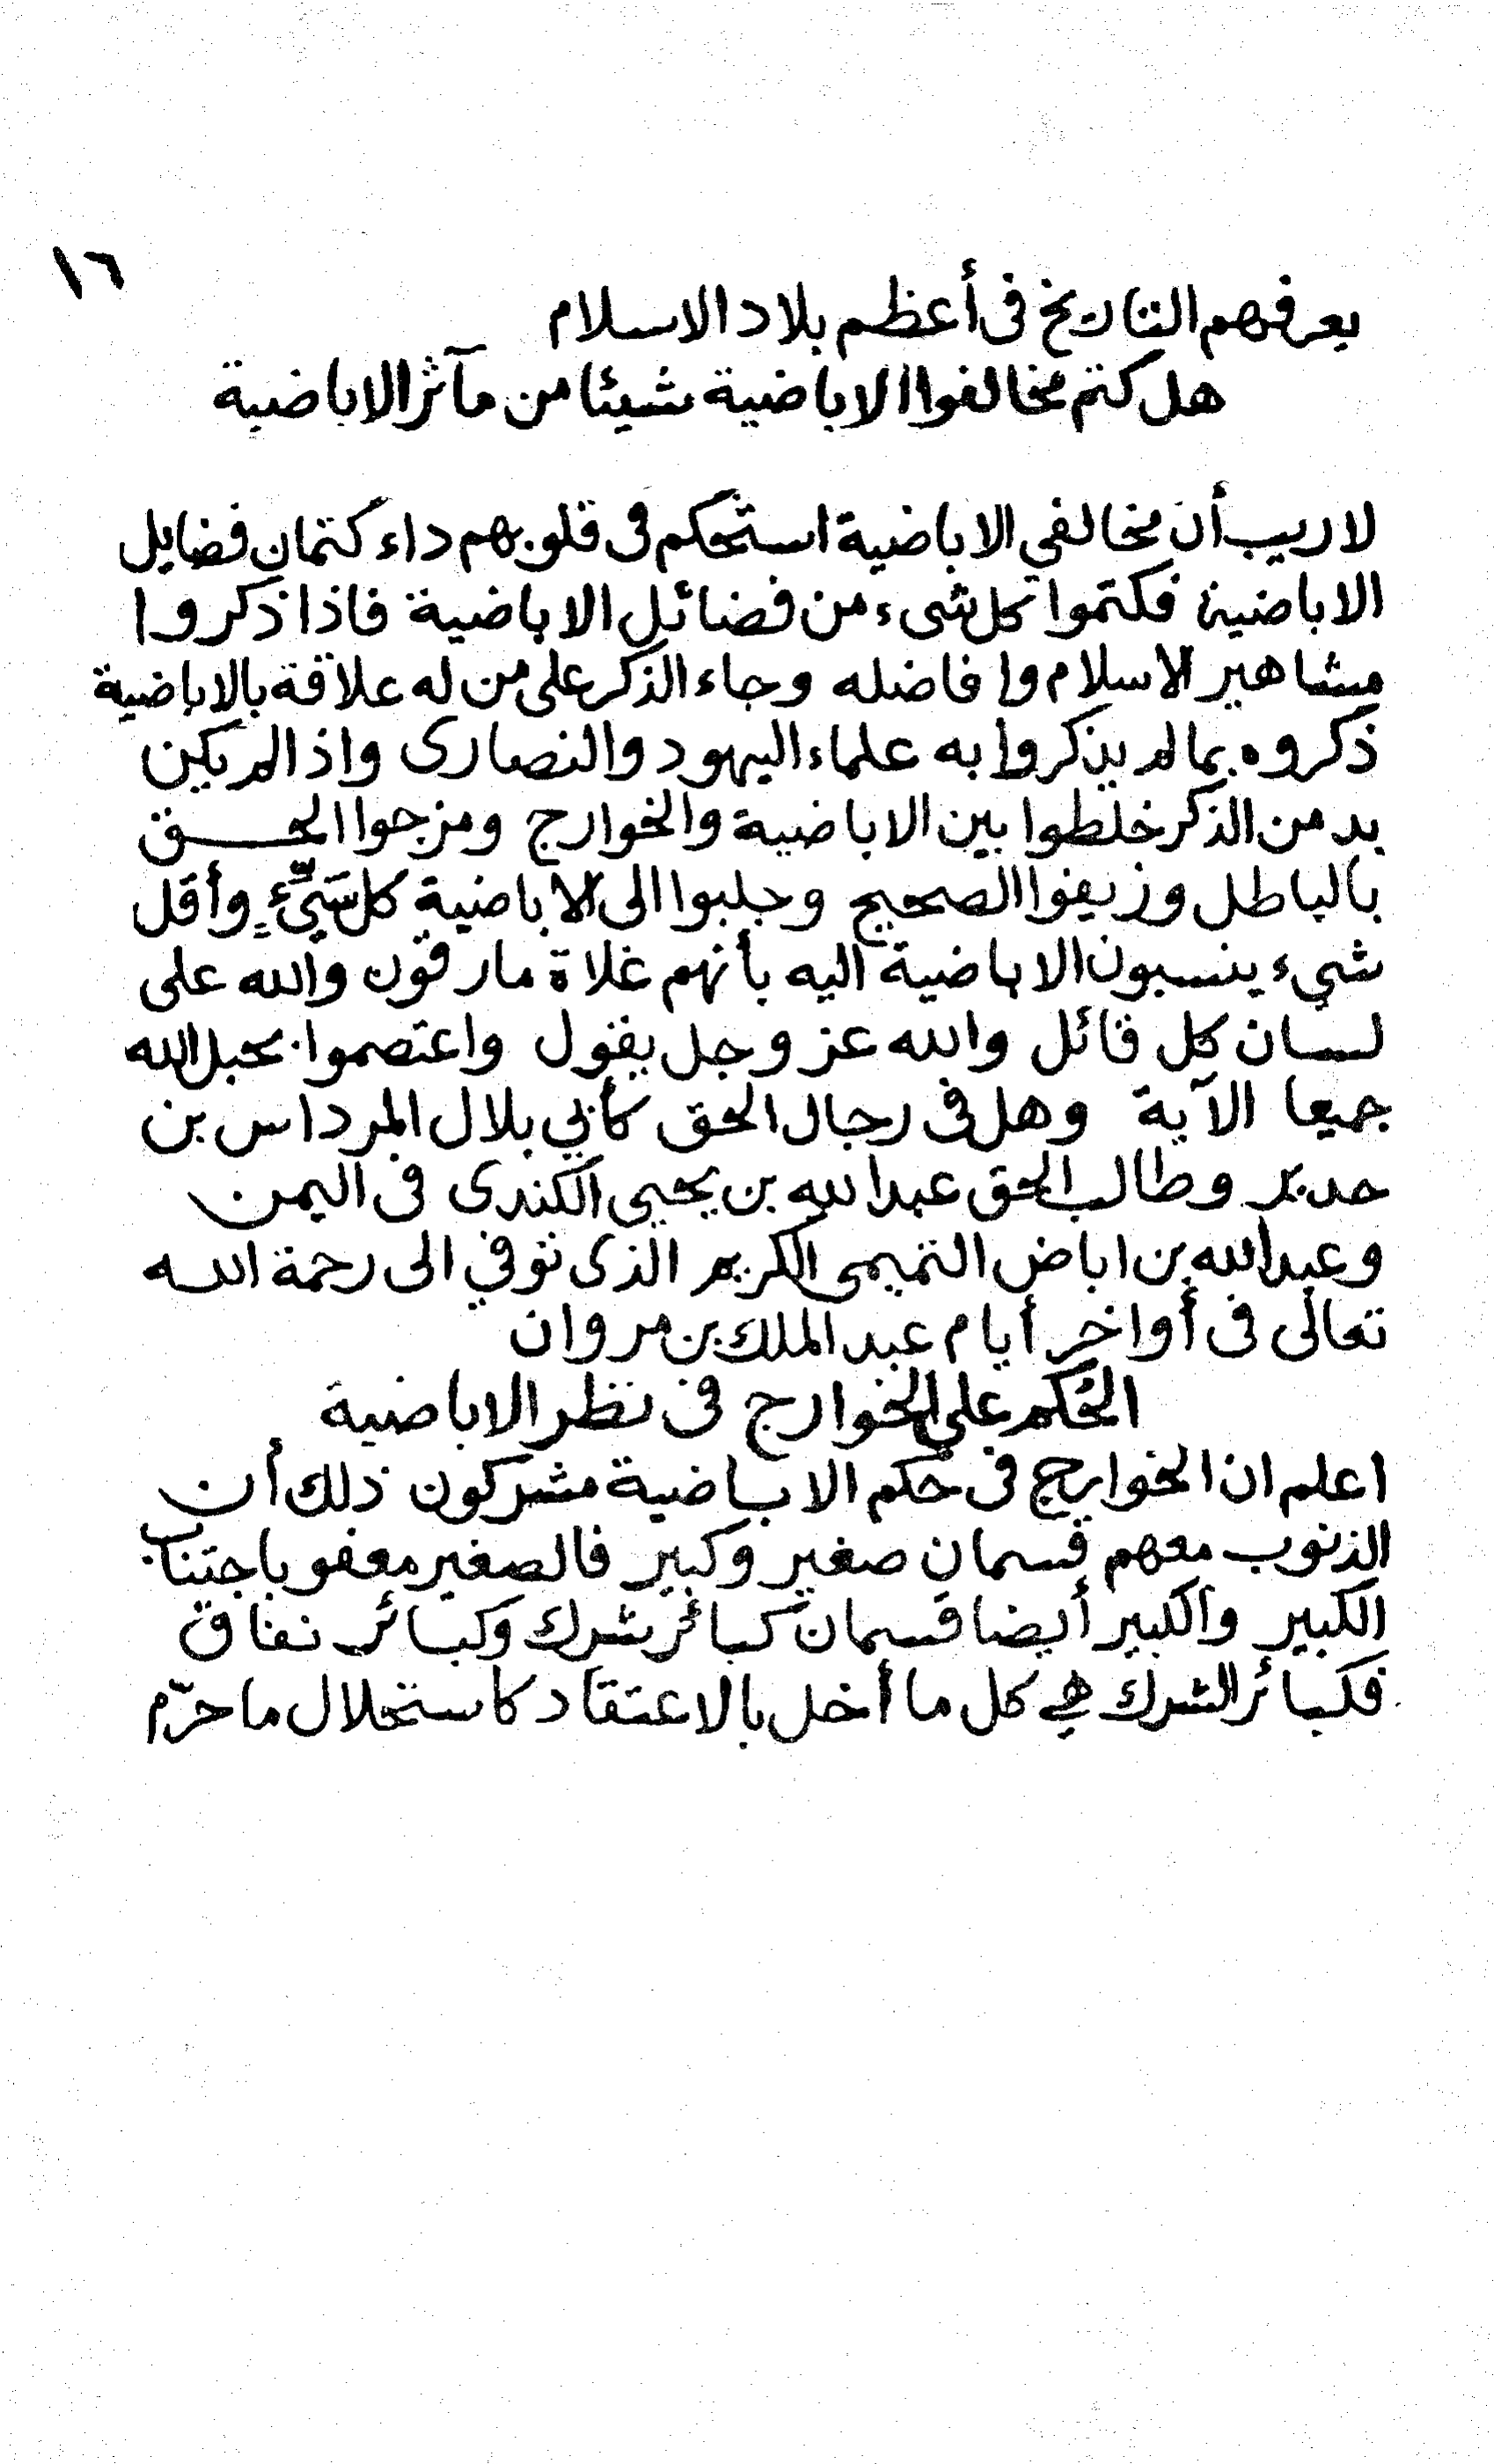 ١٦
يعرفهم التاريخ فى أعظم بلاد الاسلام
هل كتم مخالفوا الاباضية شيئا من مآثر الاباضية
لاريب أن مخالفي الاباضية استحكم فى قلوبهم داء كتمان فضايل
الاباضية فكتموا كل شىء من فضائل الاباضية فاذا ذكروا
مشاهير الاسلام وافاضله وجاء الذكر على من له علاقة بالاباضية
ذكروه بمالم يذكروا به علماء اليهود والنصارى واذالم يكن
بد من الذكر خلطوا بين الاباضية والخوارج ومزجوا الحق
بالباطل وزيفوا الصحيح وجلبوا الى الاباضية كل سَيِّءٍ وأقل
شيء ينسبون الاباضية اليه بأنهم غلاة مارقون والله على
لسان كل قائل والله عز وجل يقول واعتصموا بحبل الله
جميعا الآية وهل فى رجال الحق كأبي بلال المرداس بن
حدير وطالب الحق عبدالله بن يحيى الكندى فى اليمن
وعبدالله بن اباض التميمى الكريم الذى توفي الى رحمة الله
تعالى فى أواخر أيام عبد الملك بن مروان
الحُكم على الخوارج فى نظر الاباضية
اعلم ان الخوارج فى حكم الاباضية مشركون ذلك أن
الذنوب معهم قسمان صغير وكبير فالصغير معفو باجتناب
الكبير والكبير أيضا قسمان كبائر شرك وكبائر نفاق
فكبائر الشرك هي كل ما أخل بالاعتقاد كاستحلال ما حرّم